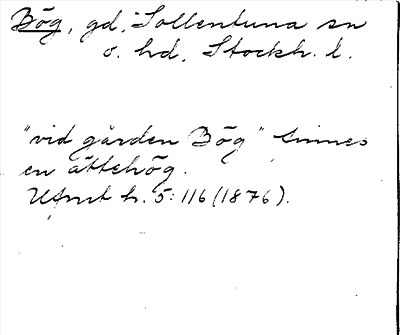 Bög, gd, Sollentuna sn
o. hd, Stockh. l.
"vid gården Bög" finnes
en ättehög.
UFmt h. 5:116 (1876).